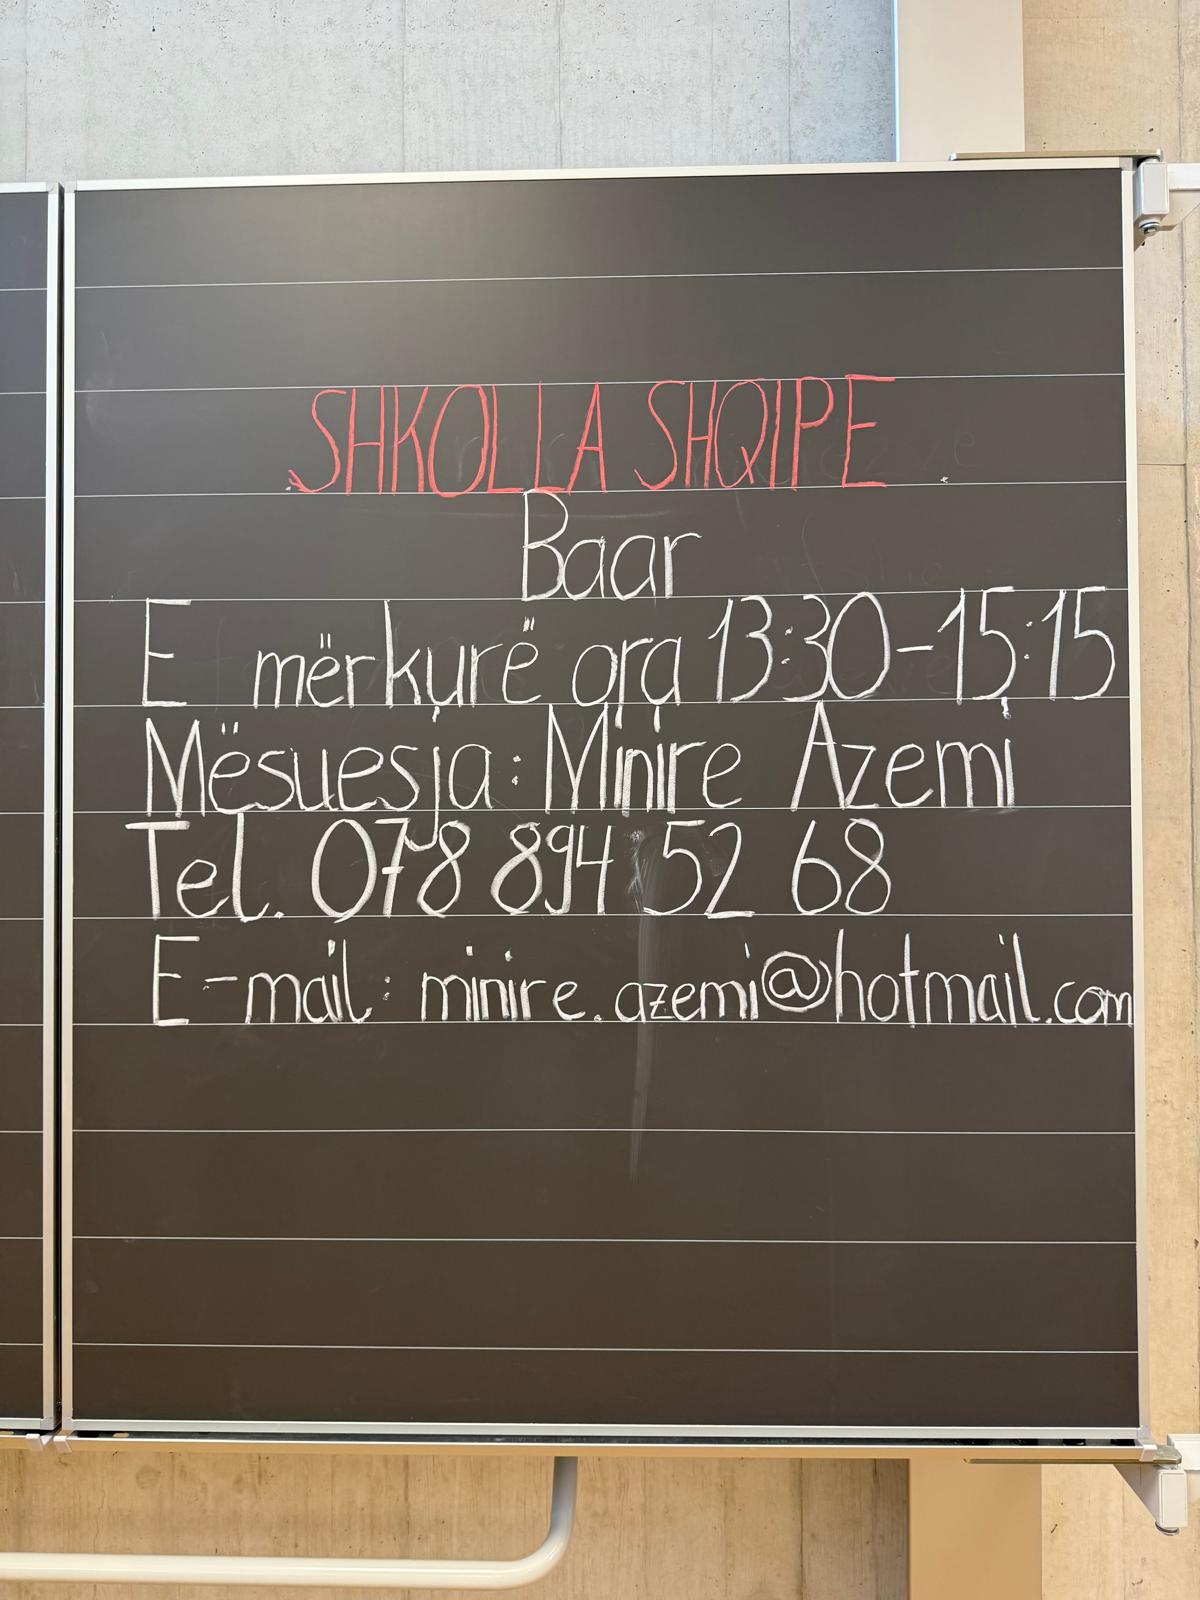 SHKOLLA SHQIPE
Baar
E mërkurë ora 13:30-15:15
Mësuesja: Minire Azemi
Tel. 078 894 52 68
E-mail: minire.azemi@hotmail.com